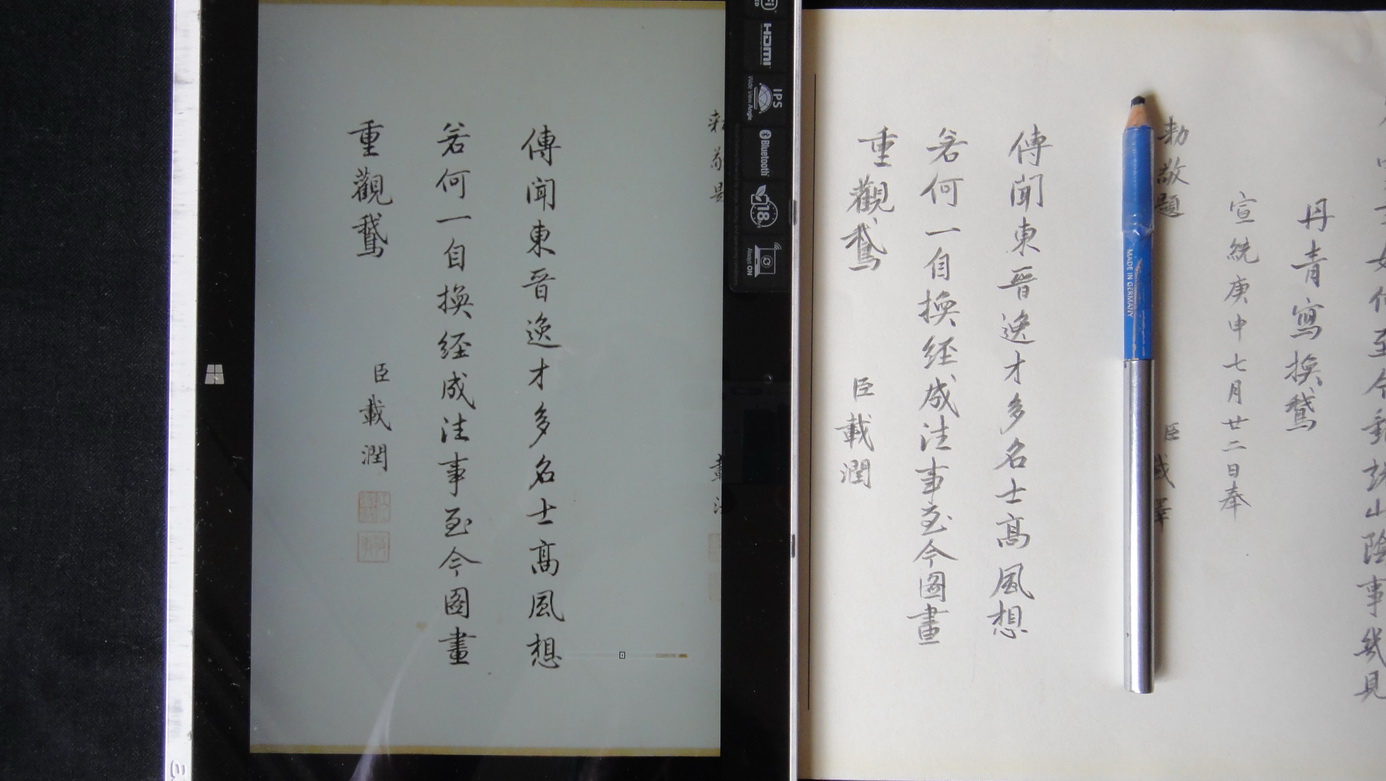 傳聞東晉逸才多名士高風想
若何一自換経成法事至今圖畫
重觀鵞
臣載潤
HDMI
IPS
Wide View Angle
Bluetooth
18
MADE IN GERMANY
丹青寫換鵞
宣統庚申七月廿二日奉
勅敬題
傳聞東晉逸才多名士高風想
若何一自換経成法事至今圖畫
重觀鵞
臣載潤